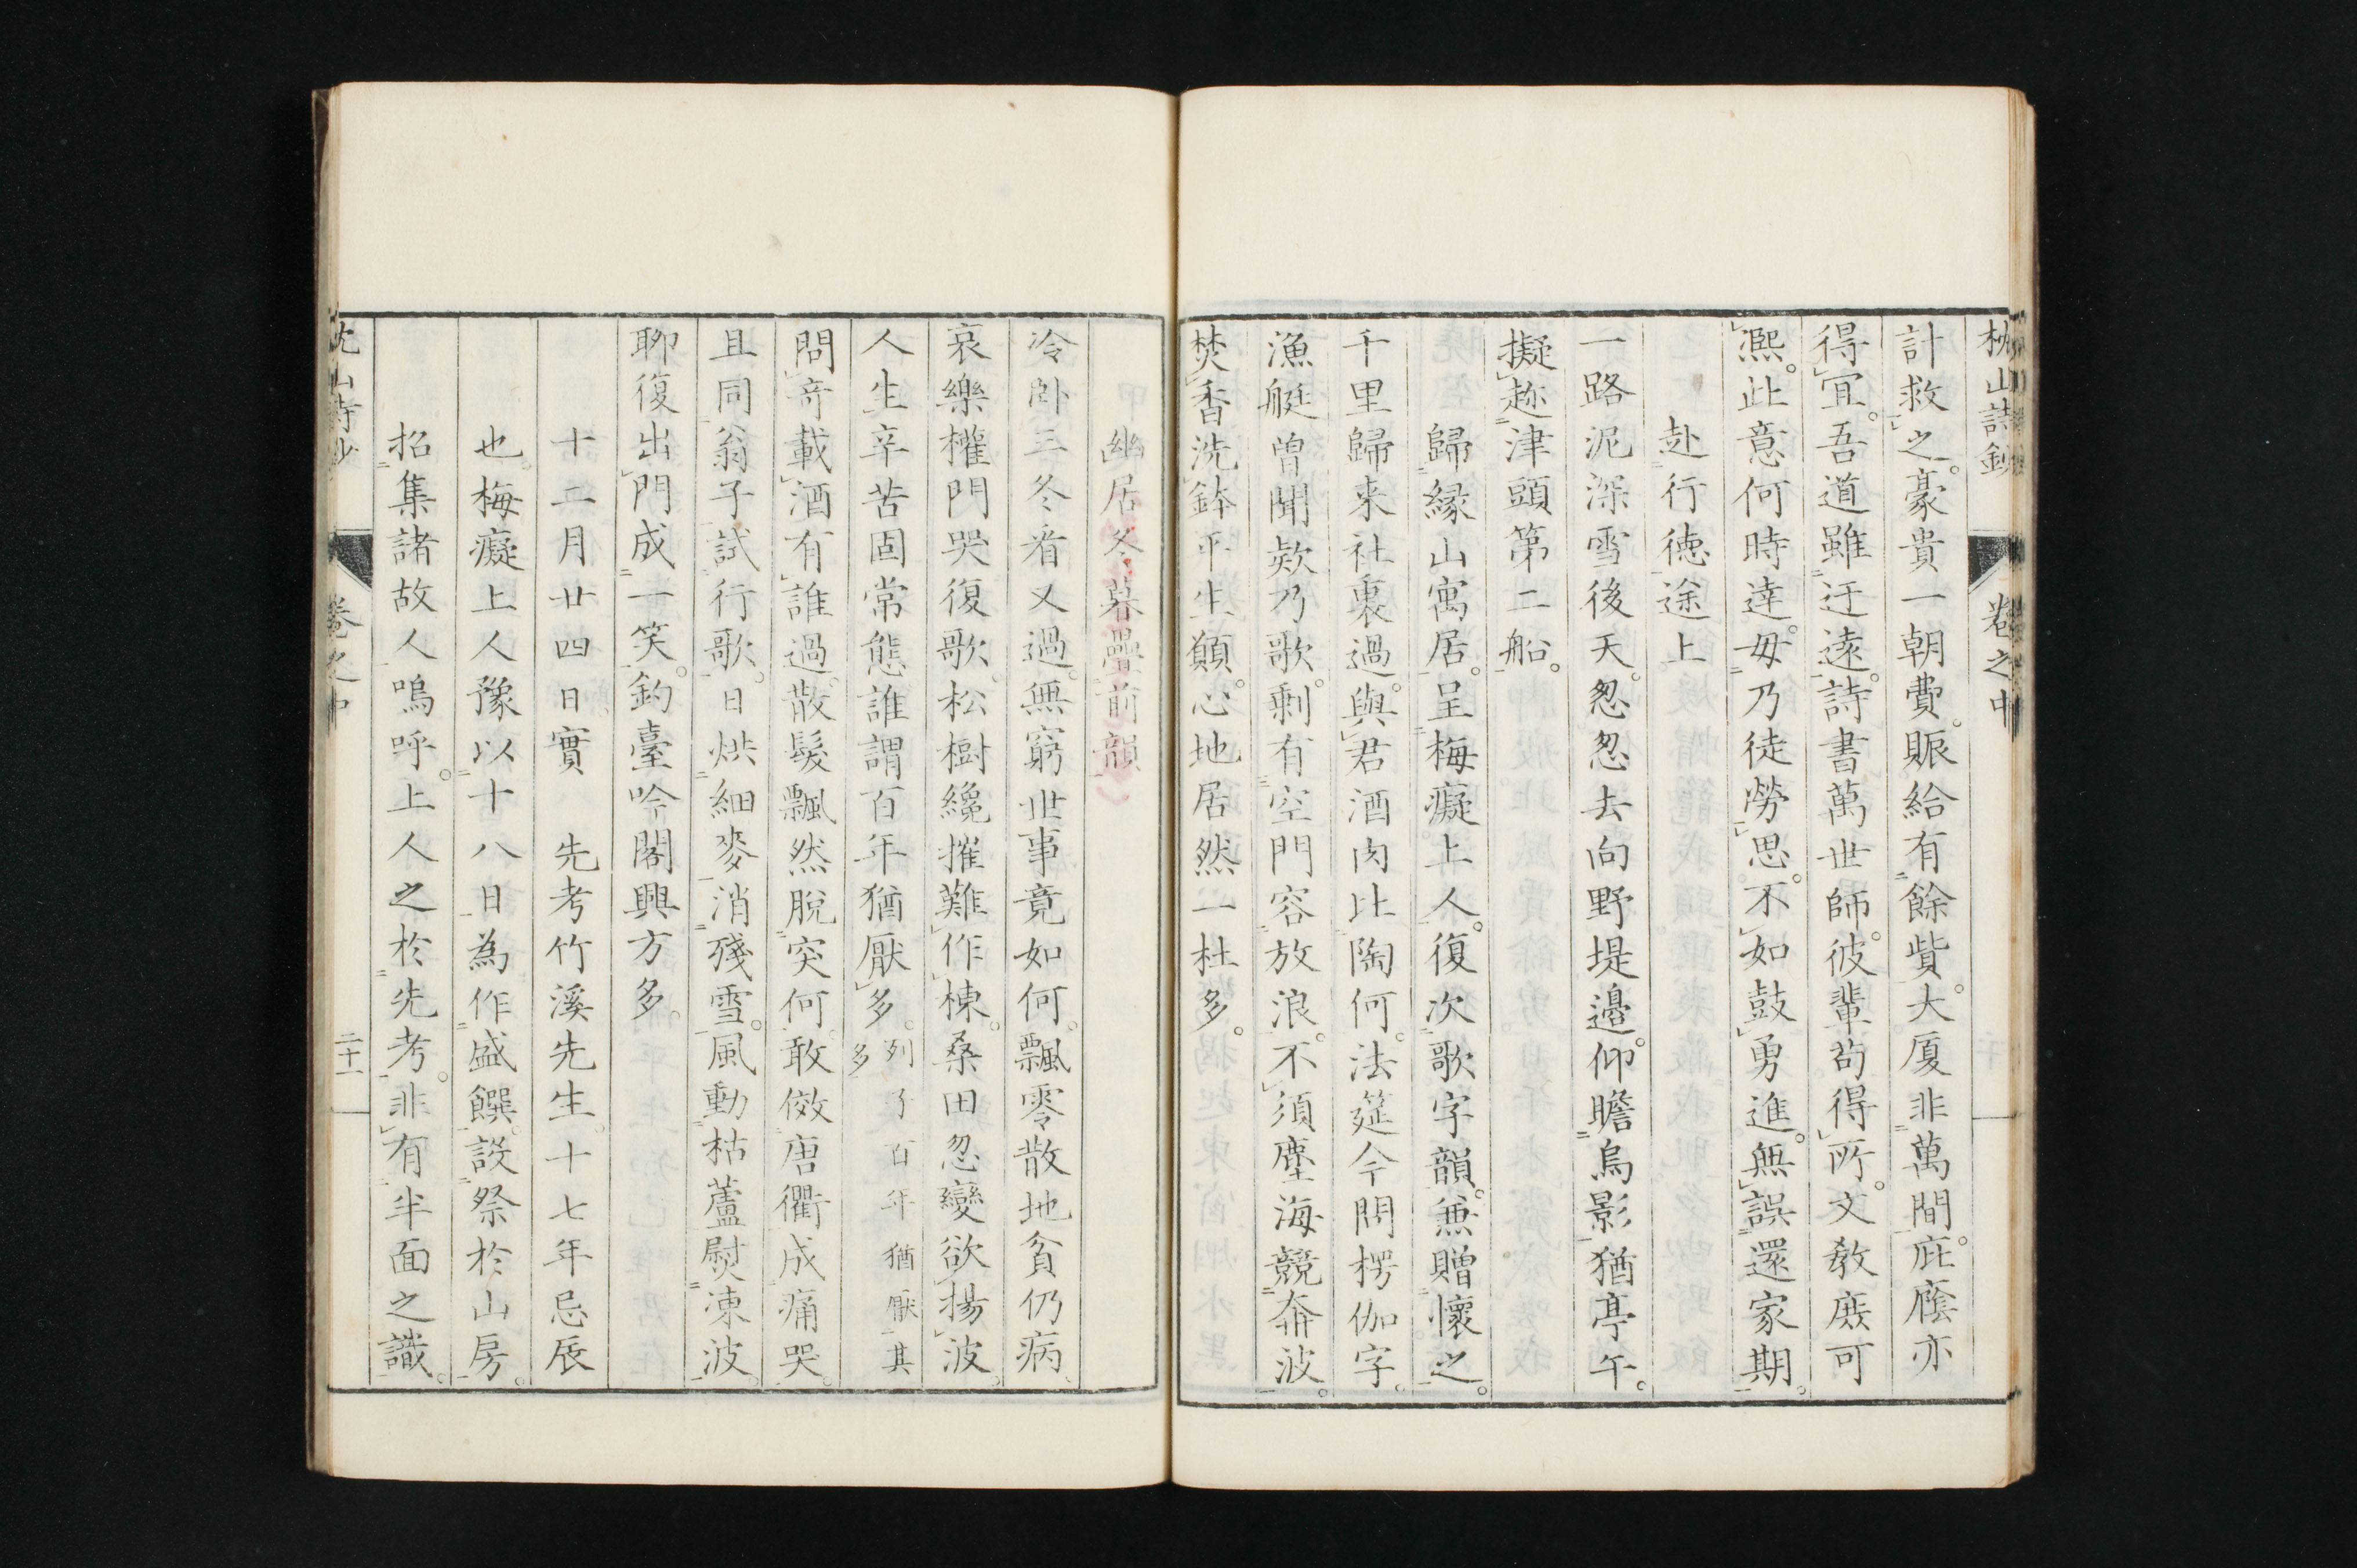 枕山詩鈔 卷之中
計救之。豪貴一朝費。賑給有餘貲。大厦非萬間。庇廕亦
得宜。吾道雖迂遠。詩書萬世師。彼輩苟得所。文教庶可
熈。此意何時達。毋乃徒勞思。不如鼓勇進。無誤還家期。
赴行德途上
一路泥深雪後天。怱怱去向野堤邉。仰瞻烏影猶亭午。
擬趂津頭第二船。
歸緑山寓居。呈梅癡上人。復次歌字韻。兼贈懷之。
千里歸来社裏過。與君酒肉比陶何。法筵今問楞伽字。
漁艇曽聞欸乃歌。剩有空門容放浪。不須塵海競奔波。
焚香洗鉢平生願。心地居然一杜多。
幽居冬暮疊前韻
冷卧三冬看又過。無窮世事竟如何。飄零散地貧仍病。
哀樂權門哭復歌。松樹纔摧難作棟。桑田忽變欲揚波。
人生辛苦固常態。誰謂百年猶厭多。列子百年猶厭其多
問竒載酒有誰過。散髮飄然脱突何。敢傚唐衢成痛哭。
且同翁子試行歌。日烘細麥消殘雪。風動枯蘆熨凍波。
聊復出門成一笑。釣臺吟閣興方多。
十二月廿四日實　先考竹溪先生十七年忌辰
也梅癡上人豫以十八日為作盛饌。設祭於山房。
招集諸故人。嗚呼。上人之於先考。非有半面之識。
枕山詩鈔 卷之中 二十一